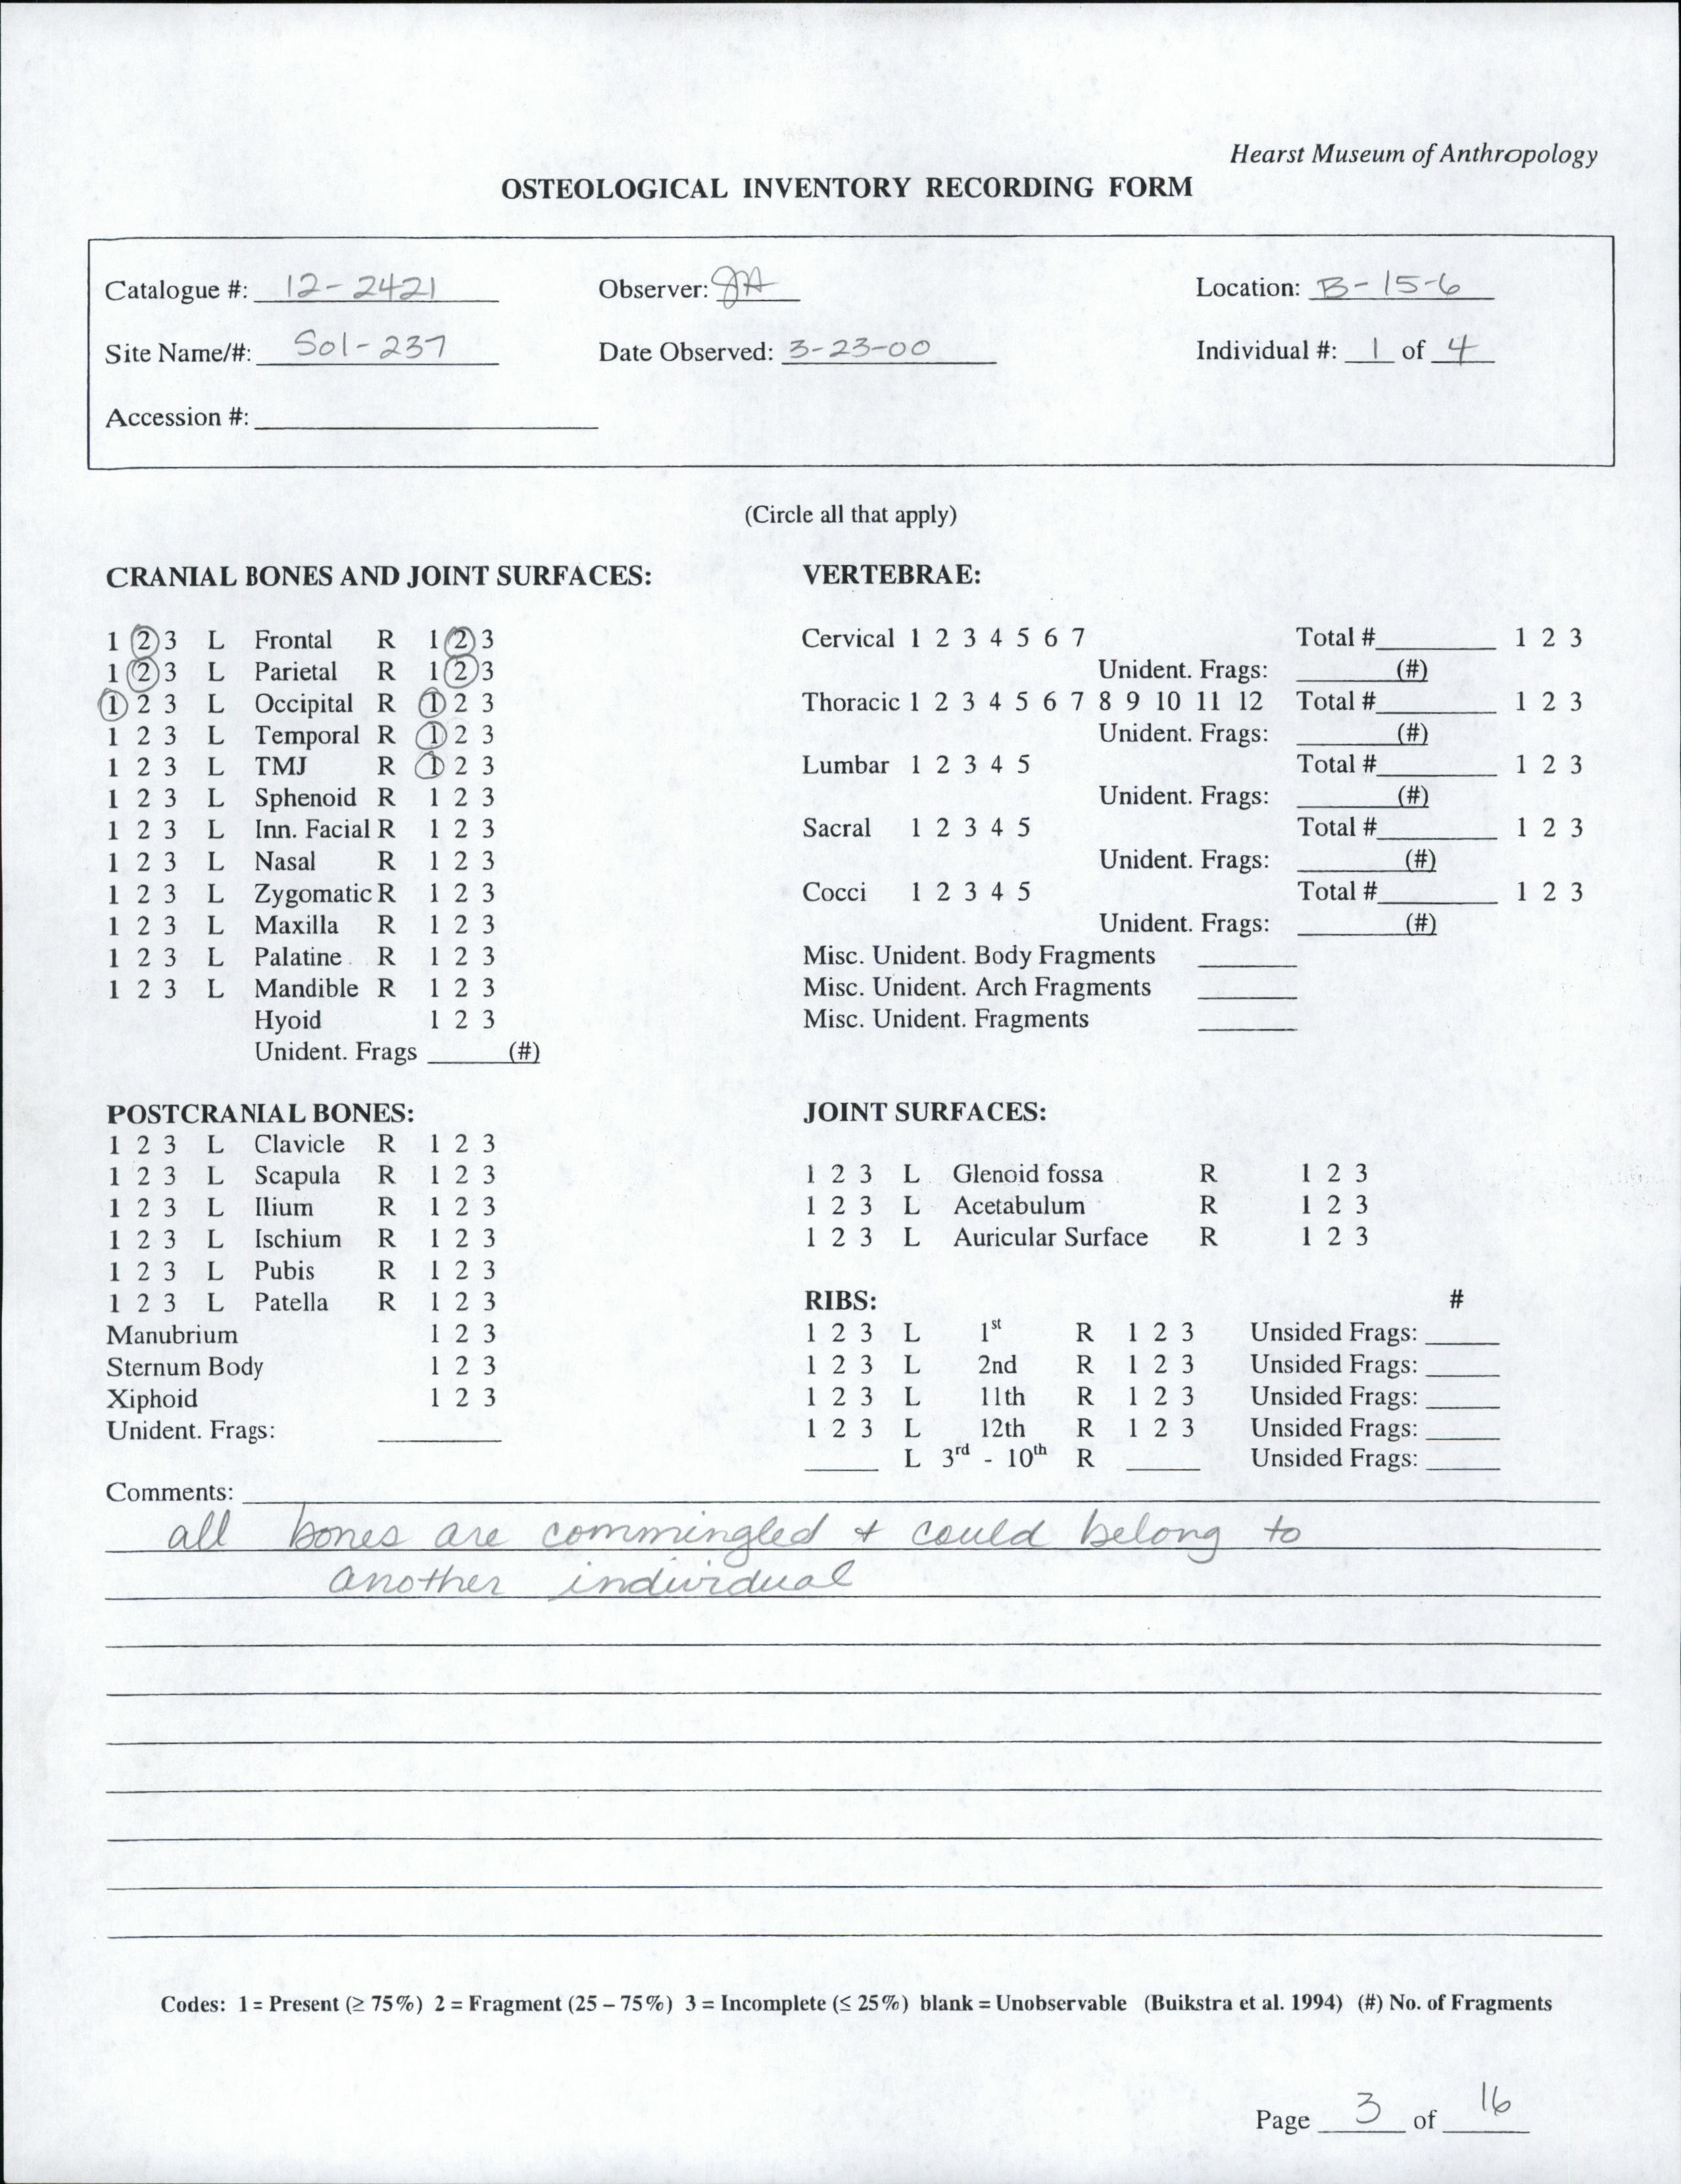 Hearst Museum of Anthropology
OSTEOLOGICAL INVENTORY RECORDING FORM
Catalogue #: 12-2421 Observer: JA Location: B-15-6
Site Name/#: Sol-237 Date Observed: 3-23-00 Individual #: 1 of 4
Accession #:
(Circle all that apply)
CRANIAL BONES AND JOINT SURFACES:
1 2 3 L Frontal R 1 2 3
1 2 3 L Parietal R 1 2 3
1 2 3 L Occipital R 1 2 3
1 2 3 L Temporal R 1 2 3
1 2 3 L TMJ R 1 2 3
1 2 3 L Sphenoid R 1 2 3
1 2 3 L Inn. Facial R 1 2 3
1 2 3 L Nasal R 1 2 3
1 2 3 L Zygomatic R 1 2 3
1 2 3 L Maxilla R 1 2 3
1 2 3 L Palatine R 1 2 3
1 2 3 L Mandible R 1 2 3
Hyoid 1 2 3
Unident. Frags (#)
VERTEBRAE:
Cervical 1 2 3 4 5 6 7 Total # 1 2 3
Unident. Frags: (#)
Thoracic 1 2 3 4 5 6 7 8 9 10 11 12 Total # 1 2 3
Unident. Frags: (#)
Lumbar 1 2 3 4 5 Total # 1 2 3
Unident. Frags: (#)
Sacral 1 2 3 4 5 Total # 1 2 3
Unident. Frags: (#)
Cocci 1 2 3 4 5 Total # 1 2 3
Unident. Frags: (#)
Misc. Unident. Body Fragments
Misc. Unident. Arch Fragments
Misc. Unident. Fragments
POSTCRANIAL BONES:
1 2 3 L Clavicle R 1 2 3
1 2 3 L Scapula R 1 2 3
1 2 3 L Ilium R 1 2 3
1 2 3 L Ischium R 1 2 3
1 2 3 L Pubis R 1 2 3
1 2 3 L Patella R 1 2 3
Manubrium 1 2 3
Sternum Body 1 2 3
Xiphoid 1 2 3
Unident. Frags:
JOINT SURFACES:
1 2 3 L Glenoid fossa R 1 2 3
1 2 3 L Acetabulum R 1 2 3
1 2 3 L Auricular Surface R 1 2 3
RIBS: #
1 2 3 L 1st R 1 2 3 Unsided Frags:
1 2 3 L 2nd R 1 2 3 Unsided Frags:
1 2 3 L 11th R 1 2 3 Unsided Frags:
1 2 3 L 12th R 1 2 3 Unsided Frags:
L 3rd - 10th R Unsided Frags:
Comments:
all bones are commingled + could belong to
another individual
Codes: 1 = Present (≥ 75%) 2 = Fragment (25 – 75%) 3 = Incomplete (≤ 25%) blank = Unobservable (Buikstra et al. 1994) (#) No. of Fragments
Page 3 of 16